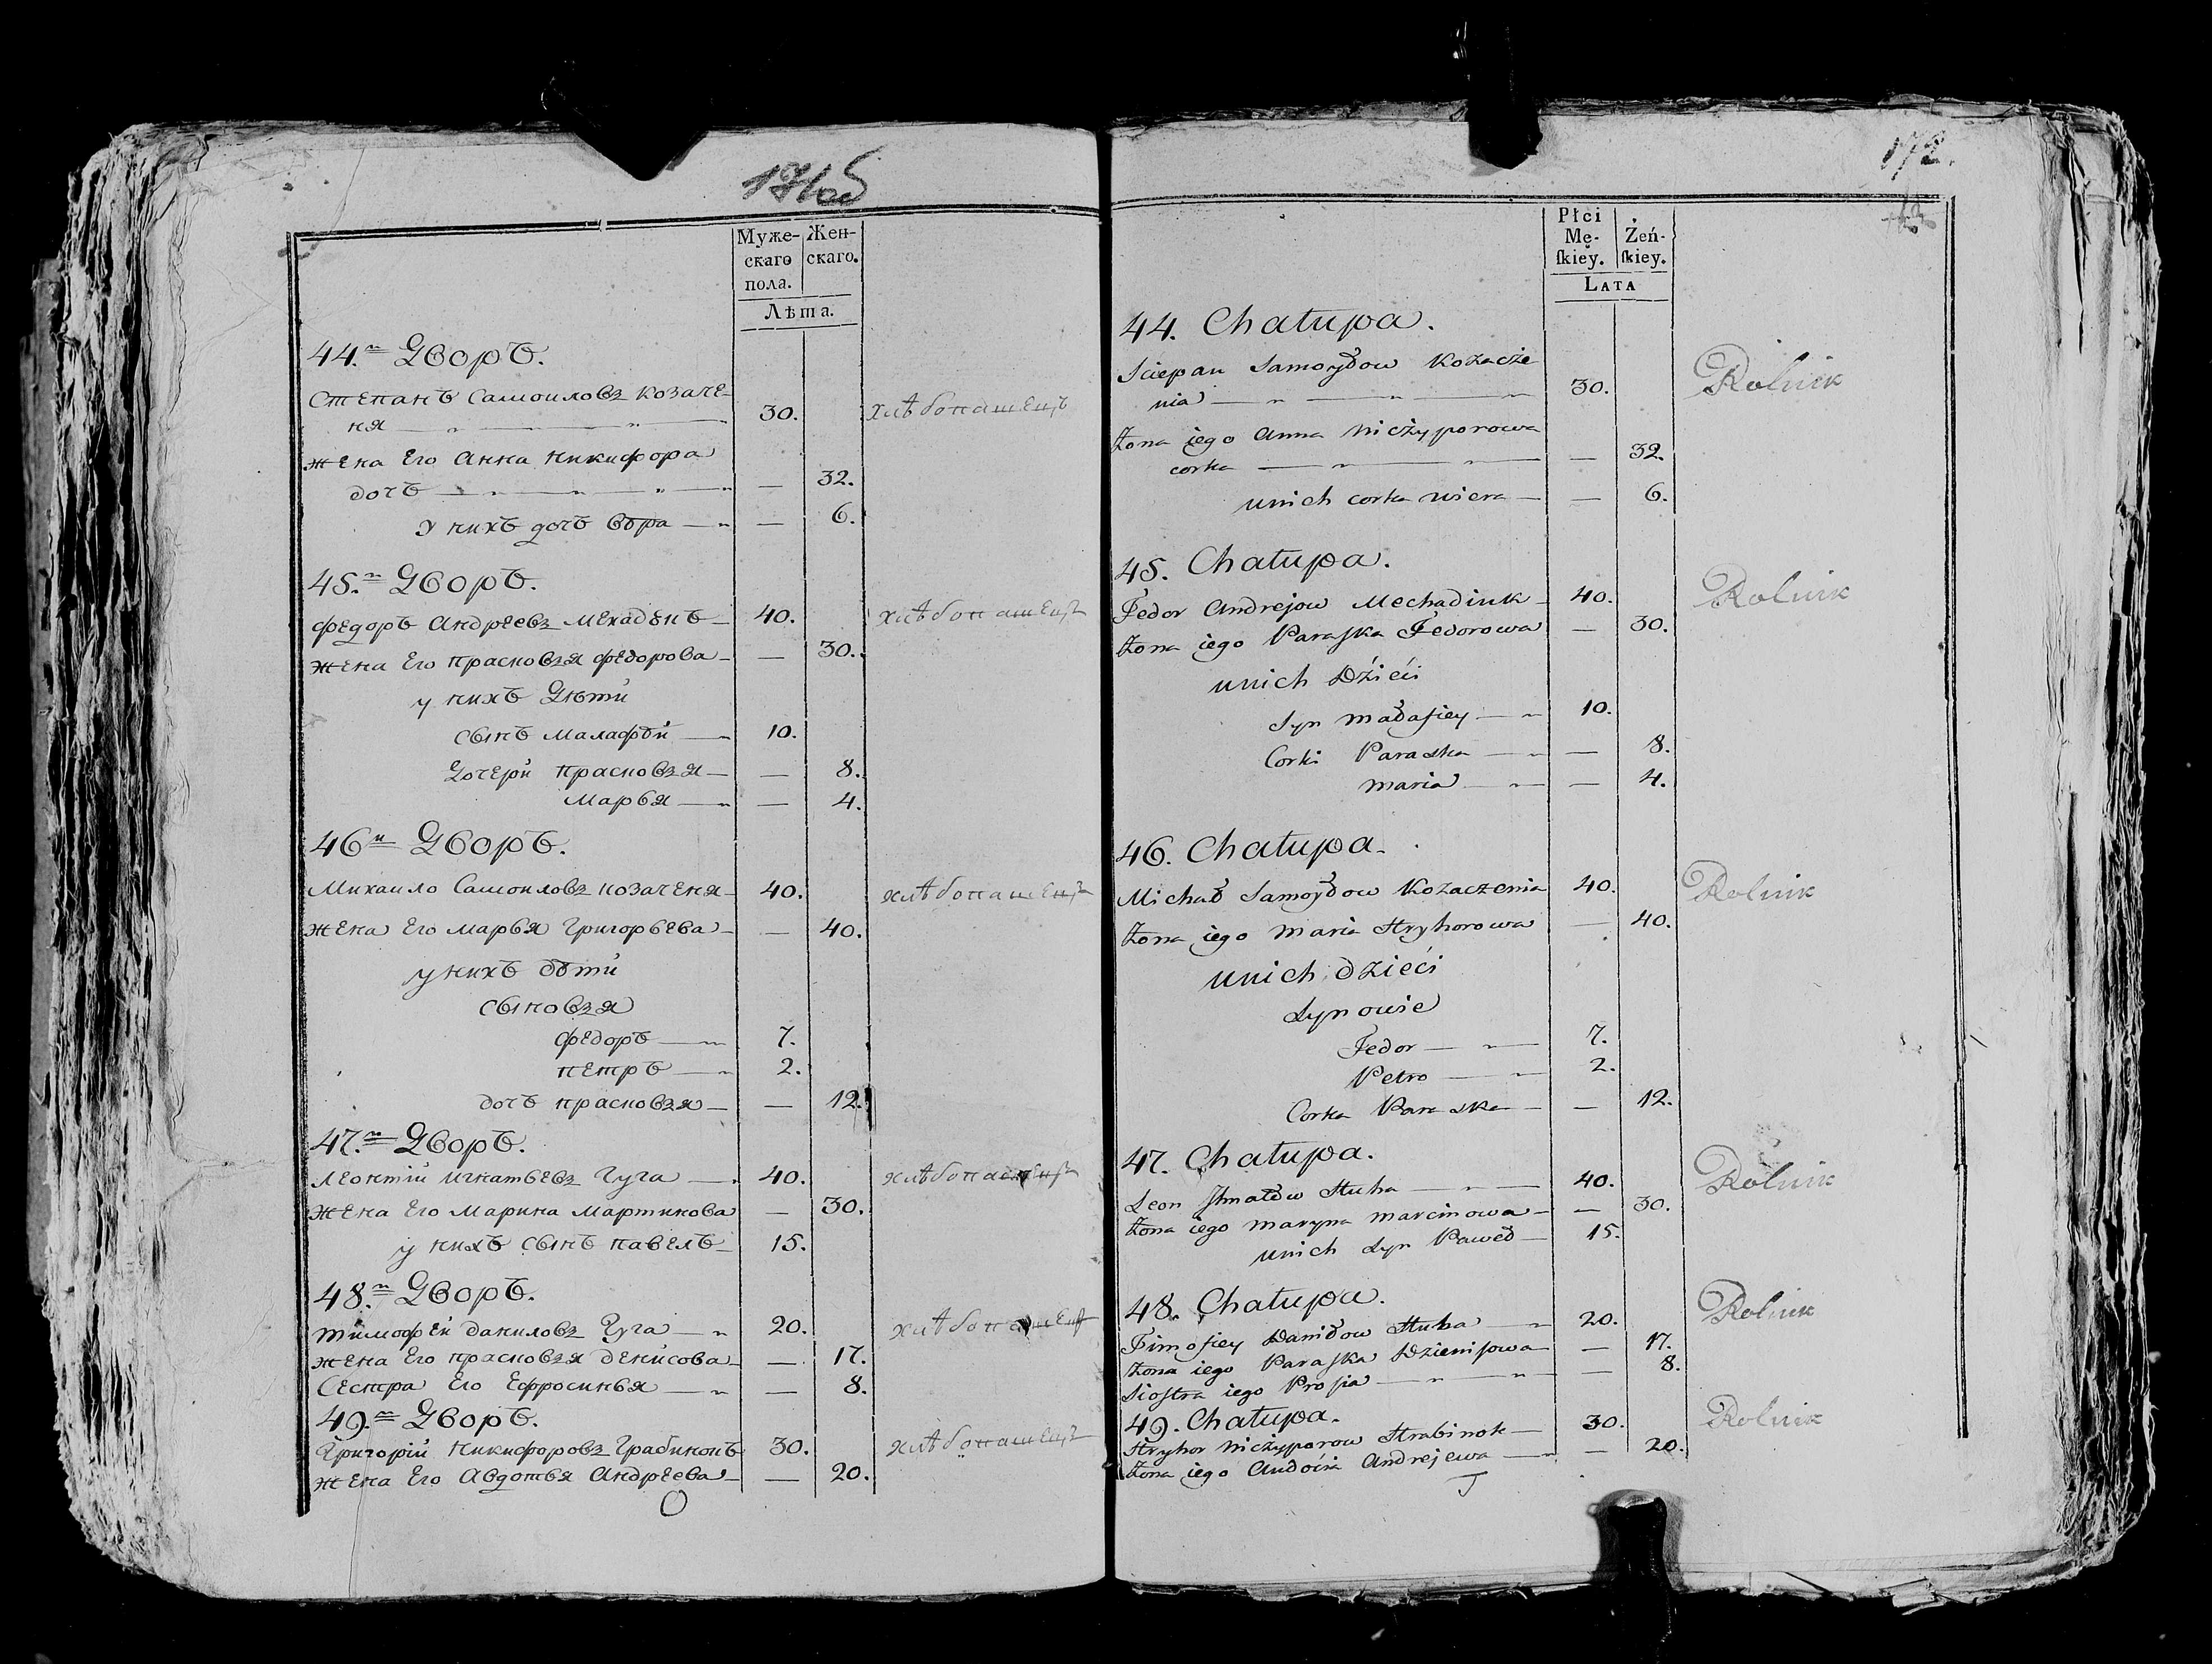 171об
Муже-
скаго
пола.
Жен-
скаго.
Лѣта.
44.й Дворъ.
Степанъ Самоиловъ козаче-
ня — " — " — 30. хлѣбопашецъ
Жена Его Анна Никифора
дочъ — " — " — " — — 32.
У нихъ дочъ вѣра — " — 6.
45.й Дворъ.
Федоръ Андреевъ Мехадюкъ — 40. хлѣбопашецъ
Жена Его Прасковья Федорова — — 30.
у нихъ Дѣти
сынъ Малафѣй — " 10.
Дочери Прасковья — — 8.
Марья — " — 4.
46й Дворъ.
Михаило Самоиловъ козаченя — 40. хлѣбопашецъ
Жена Его Марья Григорьева — — 40.
у нихъ дѣти
сыновья
Федоръ — " 7.
Петръ — " 2.
дочъ Прасковья — — 12.
47.й Дворъ.
Леонтій Игнатьевъ Гуга — 40. хлѣбопашецъ
Жена Его Марина Мартинова — 30.
у нихъ сынъ Павелъ — 15.
48.й Дворъ.
Тимофей Даниловъ Гуга — " 20. хлѣбопашецъ
Жена Его Прасковья Денисова — — 17.
Сестра Его Ефросинья — " — 8.
49.й Дворъ.
Григорій Никифоровъ Грабинокъ 30. хлѣбопашецъ
Жена Его Авдотья Андреева — — 20.
О
172.
Płci
Mę-
ſkiey.
Żeń-
ſkiey.
LATA
44. Chałupa.
Sciepan Samoyłow Kozacze
nia — " — " — " 30. Rolnik
Żona iego Anna Niczyporowa
corka — " — " — — 32.
unich corka wiera — — 6.
45. Chałupa.
Fedor Andrejow Mechadiuk — 40. Rolnik
Żona iego Paraſka Fedorowa — 30.
unich Dzieci
Syn małafiey — " 10.
Corki Paraska — " — 8.
maria — " — 4.
46. Chałupa.
Michał Samoyłow Kozaczenia 40. Rolnik
Żona iego maria Hryhorowa — 40.
unich dzieci
Synowie
Fedor — " — 7.
Petro — " 2.
Corka Paraska — — 12.
47. Chałupa.
Leon Ihnatow Huha — " — 40. Rolnik
Żona iego maryna marcinowa — — 30.
unich Syn Paweł — 15.
48. Chałupa.
Timofiey Daniłow Huha — " 20. Rolnik
Żona iego Paraſka Dzieniſowa — — 17.
Sioſtra iego Proſia — " — " — — 8.
49. Chałupa.
Hryhor Niczyporow Hrabinok — 30. Rolnik
Żona iego Audoćia Andrejewa — " — 20.